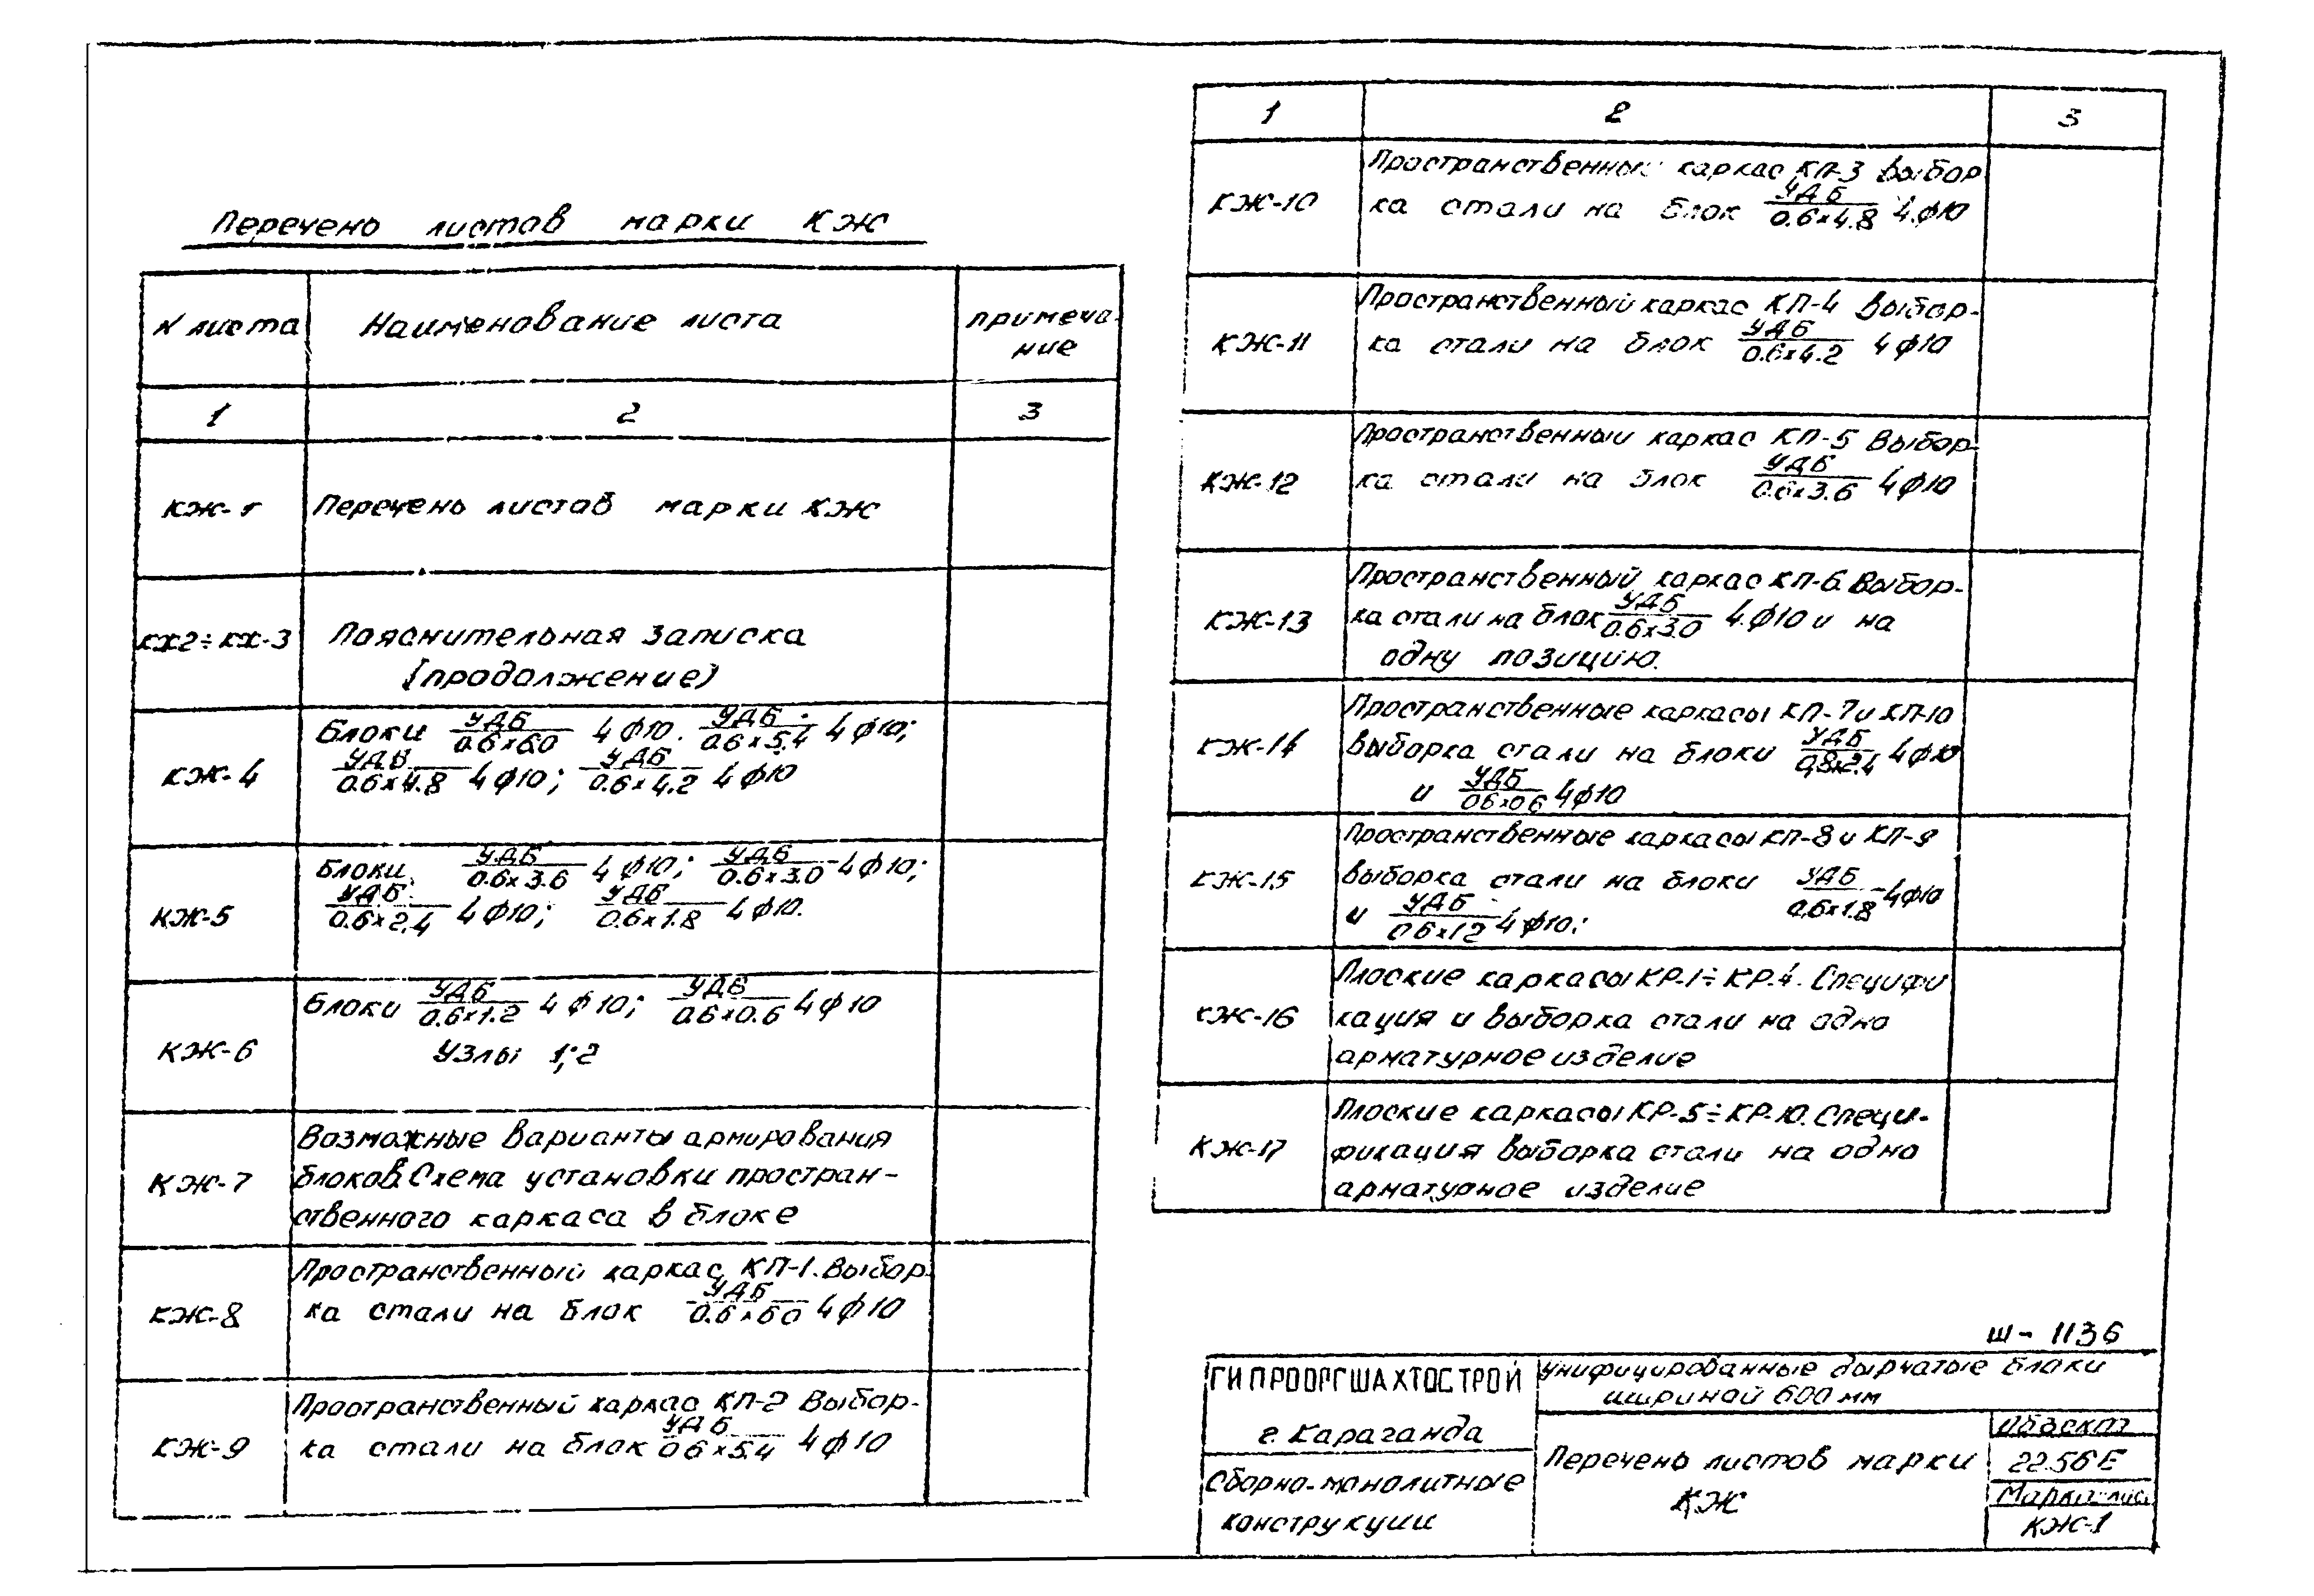 Перечень листов марки КЖ
N листа Наименование листа Примечание
1 2 3
КЖ-1 Перечень листов марки КЖ
КЖ2÷КЖ-3 Пояснительная записка
(продолжение)
КЖ-4 Блоки УДБ/0.6×6.0 4ф10. УДБ/0.6×5.4 4ф10;
УДБ/0.6×4.8 4ф10; УДБ/0.6×4.2 4ф10
КЖ-5 Блоки УДБ/0.6×3.6 4ф10; УДБ/0.6×3.0 -4ф10;
УДБ/0.6×2.4 4ф10; УДБ/0.6×1.8 4ф10.
КЖ-6 Блоки УДБ/0.6×1.2 4ф10; УДБ/0.6×0.6 4ф10
Узлы 1;2
КЖ-7 Возможные варианты армирования
блоков. Схема установки простран-
ственного каркаса в блоке
КЖ-8 Пространственный каркас КП-1. Выбор-
ка стали на блок УДБ/0.6×6.0 4ф10
КЖ-9 Пространственный каркас КП-2 Выбор-
ка стали на блок УДБ/0.6×5.4 4ф10
1 2 3
КЖ-10 Пространственный каркас КП-3 Выбор
ка стали на блок УДБ/0.6×4.8 4.ф10
КЖ-11 Пространственный каркас КП-4 Выбор-
ка стали на блок УДБ/0.6×4.2 4ф10
КЖ-12 Пространственный каркас КП-5 Выбор-
ка стали на блок УДБ/0.6×3.6 4ф10
КЖ-13 Пространственный каркас КП-6. Выбор-
ка стали на блок УДБ/0.6×3.0 4.ф10 и на
одну позицию.
КЖ-14 Пространственные каркасы КП-7 и КП-10
Выборка стали на блоки УДБ/0,8×2.4 4ф10
и УДБ/0.6×0.6 4ф10
КЖ-15 Пространственные каркасы КП-8 и КП-9
Выборка стали на блоки УДБ/0.6×1.8 -4ф10
и УДБ/0.6×1.2 4ф10;
КЖ-16 Плоские каркасы КР-1÷КР-4. Специфи
кация и выборка стали на одно
арматурное изделие
КЖ-17 Плоские каркасы КР-5÷КР-10. Специ-
фикация выборка стали на одно
арматурное изделие
Ш-1136
ГИПРООРГШАХТОСТРОЙ
г. Караганда
Сборно-монолитные
конструкции
Унифицированные дырчатые блоки
шириной 600 мм
Перечень листов марки
КЖ
Объект
22.56 Е
Марка-лис
КЖ-1